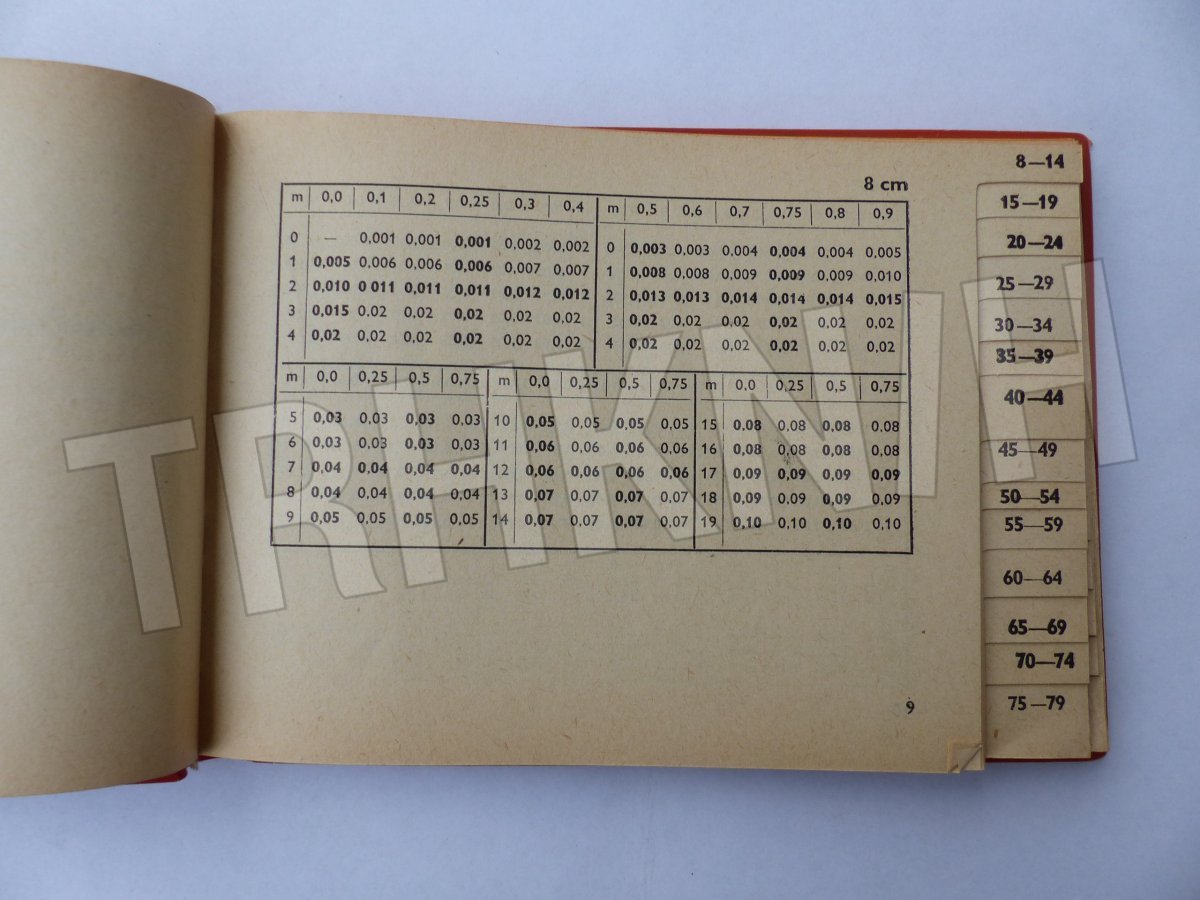 8 cm
m 0,0 0,1 0,2 0,25 0,3 0,4 m 0,5 0,6 0,7 0,75 0,8 0,9
0 — 0,001 0,001 0,001 0,002 0,002 0 0,003 0,003 0,004 0,004 0,004 0,005
1 0,005 0,006 0,006 0,006 0,007 0,007 1 0,008 0,008 0,009 0,009 0,009 0,010
2 0,010 0 011 0,011 0,011 0,012 0,012 2 0,013 0,013 0,014 0,014 0,014 0,015
3 0,015 0.02 0,02 0,02 0,02 0,02 3 0,02 0,02 0,02 0,02 0,02 0,02
4 0,02 0,02 0,02 0,02 0,02 0,02 4 0,02 0,02 0,02 0,02 0,02 0,02
m 0,0 0,25 0,5 0,75 m 0,0 0,25 0,5 0,75 m 0,0 0,25 0,5 0,75
5 0,03 0,03 0,03 0,03 10 0,05 0,05 0,05 0,05 15 0,08 0,08 0,08 0,08
6 0,03 0,03 0,03 0,03 11 0,06 0,06 0,06 0,06 16 0,08 0,08 0,08 0,08
7 0,04 0,04 0,04 0,04 12 0,06 0,06 0,06 0,06 17 0,09 0,09 0,09 0,09
8 0,04 0,04 0,04 0,04 13 0,07 0,07 0,07 0,07 18 0,09 0,09 0,09 0,09
9 0,05 0,05 0,05 0,05 14 0,07 0,07 0,07 0,07 19 0,10 0,10 0,10 0,10
9
8—14
15—19
20—24
25—29
30—34
35—39
40—44
45—49
50—54
55—59
60—64
65—69
70—74
75—79
TRHKNIH